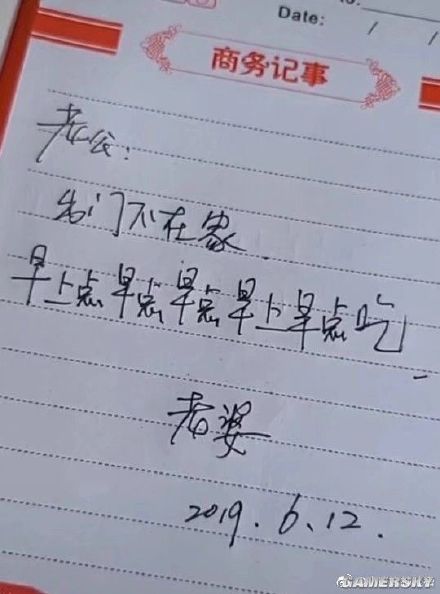 Date: / /
商务记事
老公:
出门不在家.
早上点早点早点早上早点吃
老婆
2019.6.12.
GAMERSKY